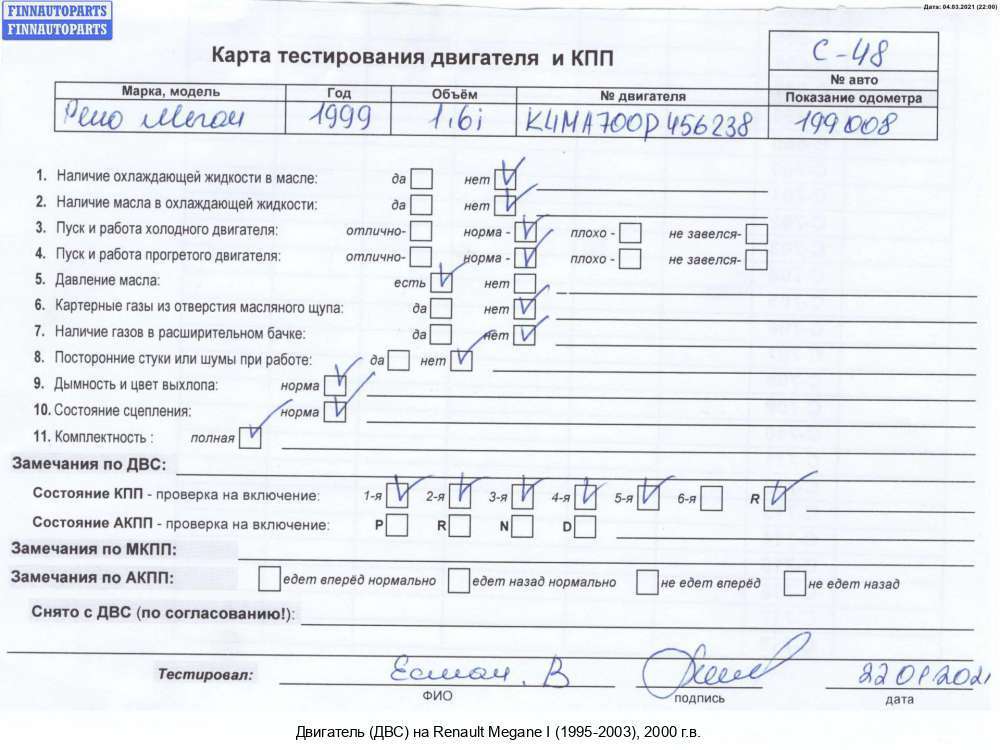 FINNAUTOPARTS
FINNAUTOPARTS
Дата: 04.03.2021 (22:00)
Карта тестирования двигателя и КПП
С-48
№ авто
Марка, модель Год Объём № двигателя Показание одометра
Рено Меган 1999 1,6i K4MA700P456238 199008
1. Наличие охлаждающей жидкости в масле: да нет
2. Наличие масла в охлаждающей жидкости: да нет
3. Пуск и работа холодного двигателя: отлично- норма - плохо - не завелся-
4. Пуск и работа прогретого двигателя: отлично- норма - плохо - не завелся-
5. Давление масла: есть нет
6. Картерные газы из отверстия масляного щупа: да нет
7. Наличие газов в расширительном бачке: да нет
8. Посторонние стуки или шумы при работе: да нет
9. Дымность и цвет выхлопа: норма
10. Состояние сцепления: норма
11. Комплектность : полная
Замечания по ДВС:
Состояние КПП - проверка на включение: 1-я 2-я 3-я 4-я 5-я 6-я R
Состояние АКПП - проверка на включение: P R N D
Замечания по МКПП:
Замечания по АКПП: едет вперёд нормально едет назад нормально не едет вперёд не едет назад
Снято с ДВС (по согласованию!):
Тестировал: В 22 01 2021
ФИО подпись дата
Двигатель (ДВС) на Renault Megane I (1995-2003), 2000 г.в.